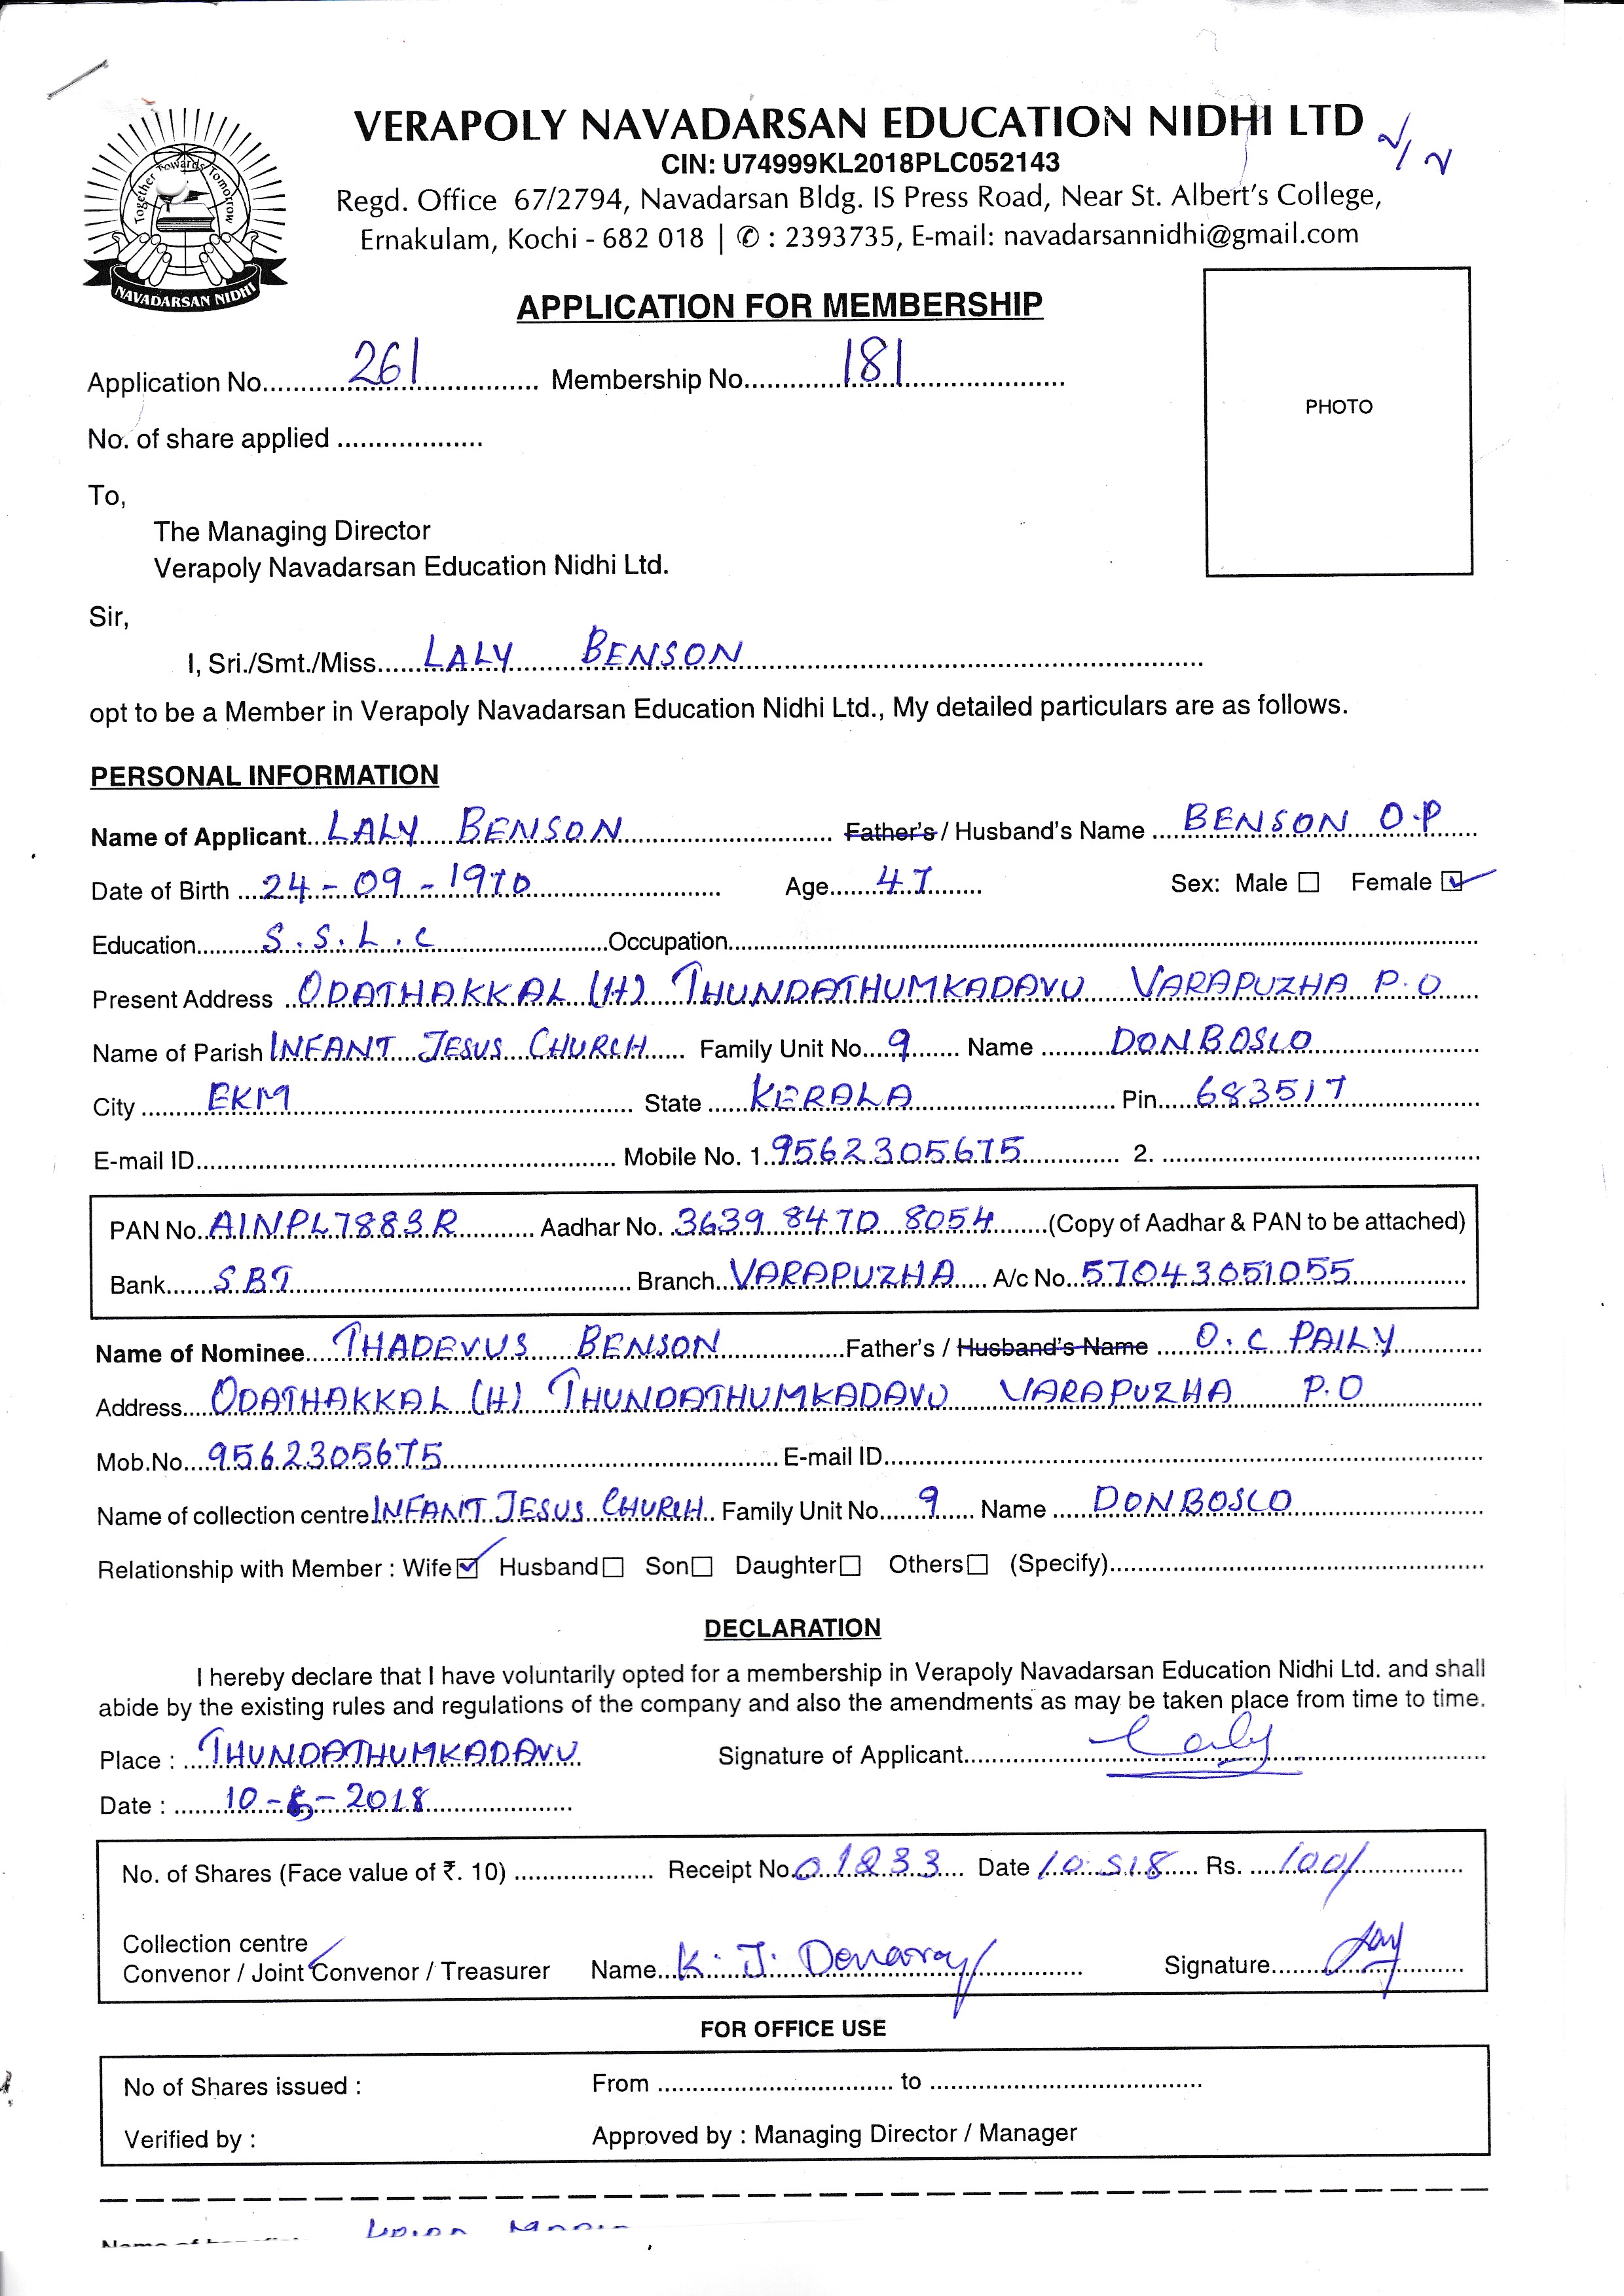 VERAPOLY NAVADARSAN EDUCATION NIDHI LTD
CIN: U74999KL2018PLC052143
Regd. Office 67/2794, Navadarsan Bldg. IS Press Road, Near St. Albert's College,
Ernakulam, Kochi - 682 018 | ✆ : 2393735, E-mail: navadarsannidhi@gmail.com
Together Towards Tomorrow
NAVADARSAN NIDHI
APPLICATION FOR MEMBERSHIP
Application No. 261 Membership No. 181
PHOTO
No. of share applied
To,
The Managing Director
Verapoly Navadarsan Education Nidhi Ltd.
Sir,
I, Sri./Smt./Miss. LALY BENSON
opt to be a Member in Verapoly Navadarsan Education Nidhi Ltd., My detailed particulars are as follows.
PERSONAL INFORMATION
Name of Applicant LALY BENSON Father's / Husband's Name BENSON O.P
Date of Birth 24-09-1970 Age 47 Sex: Male ☐ Female ☑
Education S.S.L.C Occupation
Present Address ODATHAKKAL (H) THUNDATHUMKADAVU VARAPUZHA P.O
Name of Parish INFANT JESUS CHURCH Family Unit No. 9 Name DONBOSCO
City EKM State KERALA Pin 683517
E-mail ID Mobile No. 1. 9562305675 2.
PAN No. AINPL7883R Aadhar No. 3639 8470 8054 (Copy of Aadhar & PAN to be attached)
Bank SBT Branch VARAPUZHA A/c No. 57043051055
Name of Nominee THADEVUS BENSON Father's / Husband's Name O.C PAILY
Address ODATHAKKAL (H) THUNDATHUMKADAVU VARAPUZHA P.O
Mob.No. 9562305675 E-mail ID
Name of collection centre INFANT JESUS CHURCH Family Unit No. 9 Name DONBOSCO
Relationship with Member : Wife ☑ Husband ☐ Son ☐ Daughter ☐ Others ☐ (Specify)
DECLARATION
I hereby declare that I have voluntarily opted for a membership in Verapoly Navadarsan Education Nidhi Ltd. and shall
abide by the existing rules and regulations of the company and also the amendments as may be taken place from time to time.
Place : THUNDATHUMKADAVU Signature of Applicant Laly
Date : 10-5-2018
No. of Shares (Face value of ₹. 10) Receipt No. 01233 Date 10.5.18 Rs. 100/
Collection centre
Convenor / Joint Convenor / Treasurer Name K. J. Signature
FOR OFFICE USE
No of Shares issued : From to
Verified by : Approved by : Managing Director / Manager